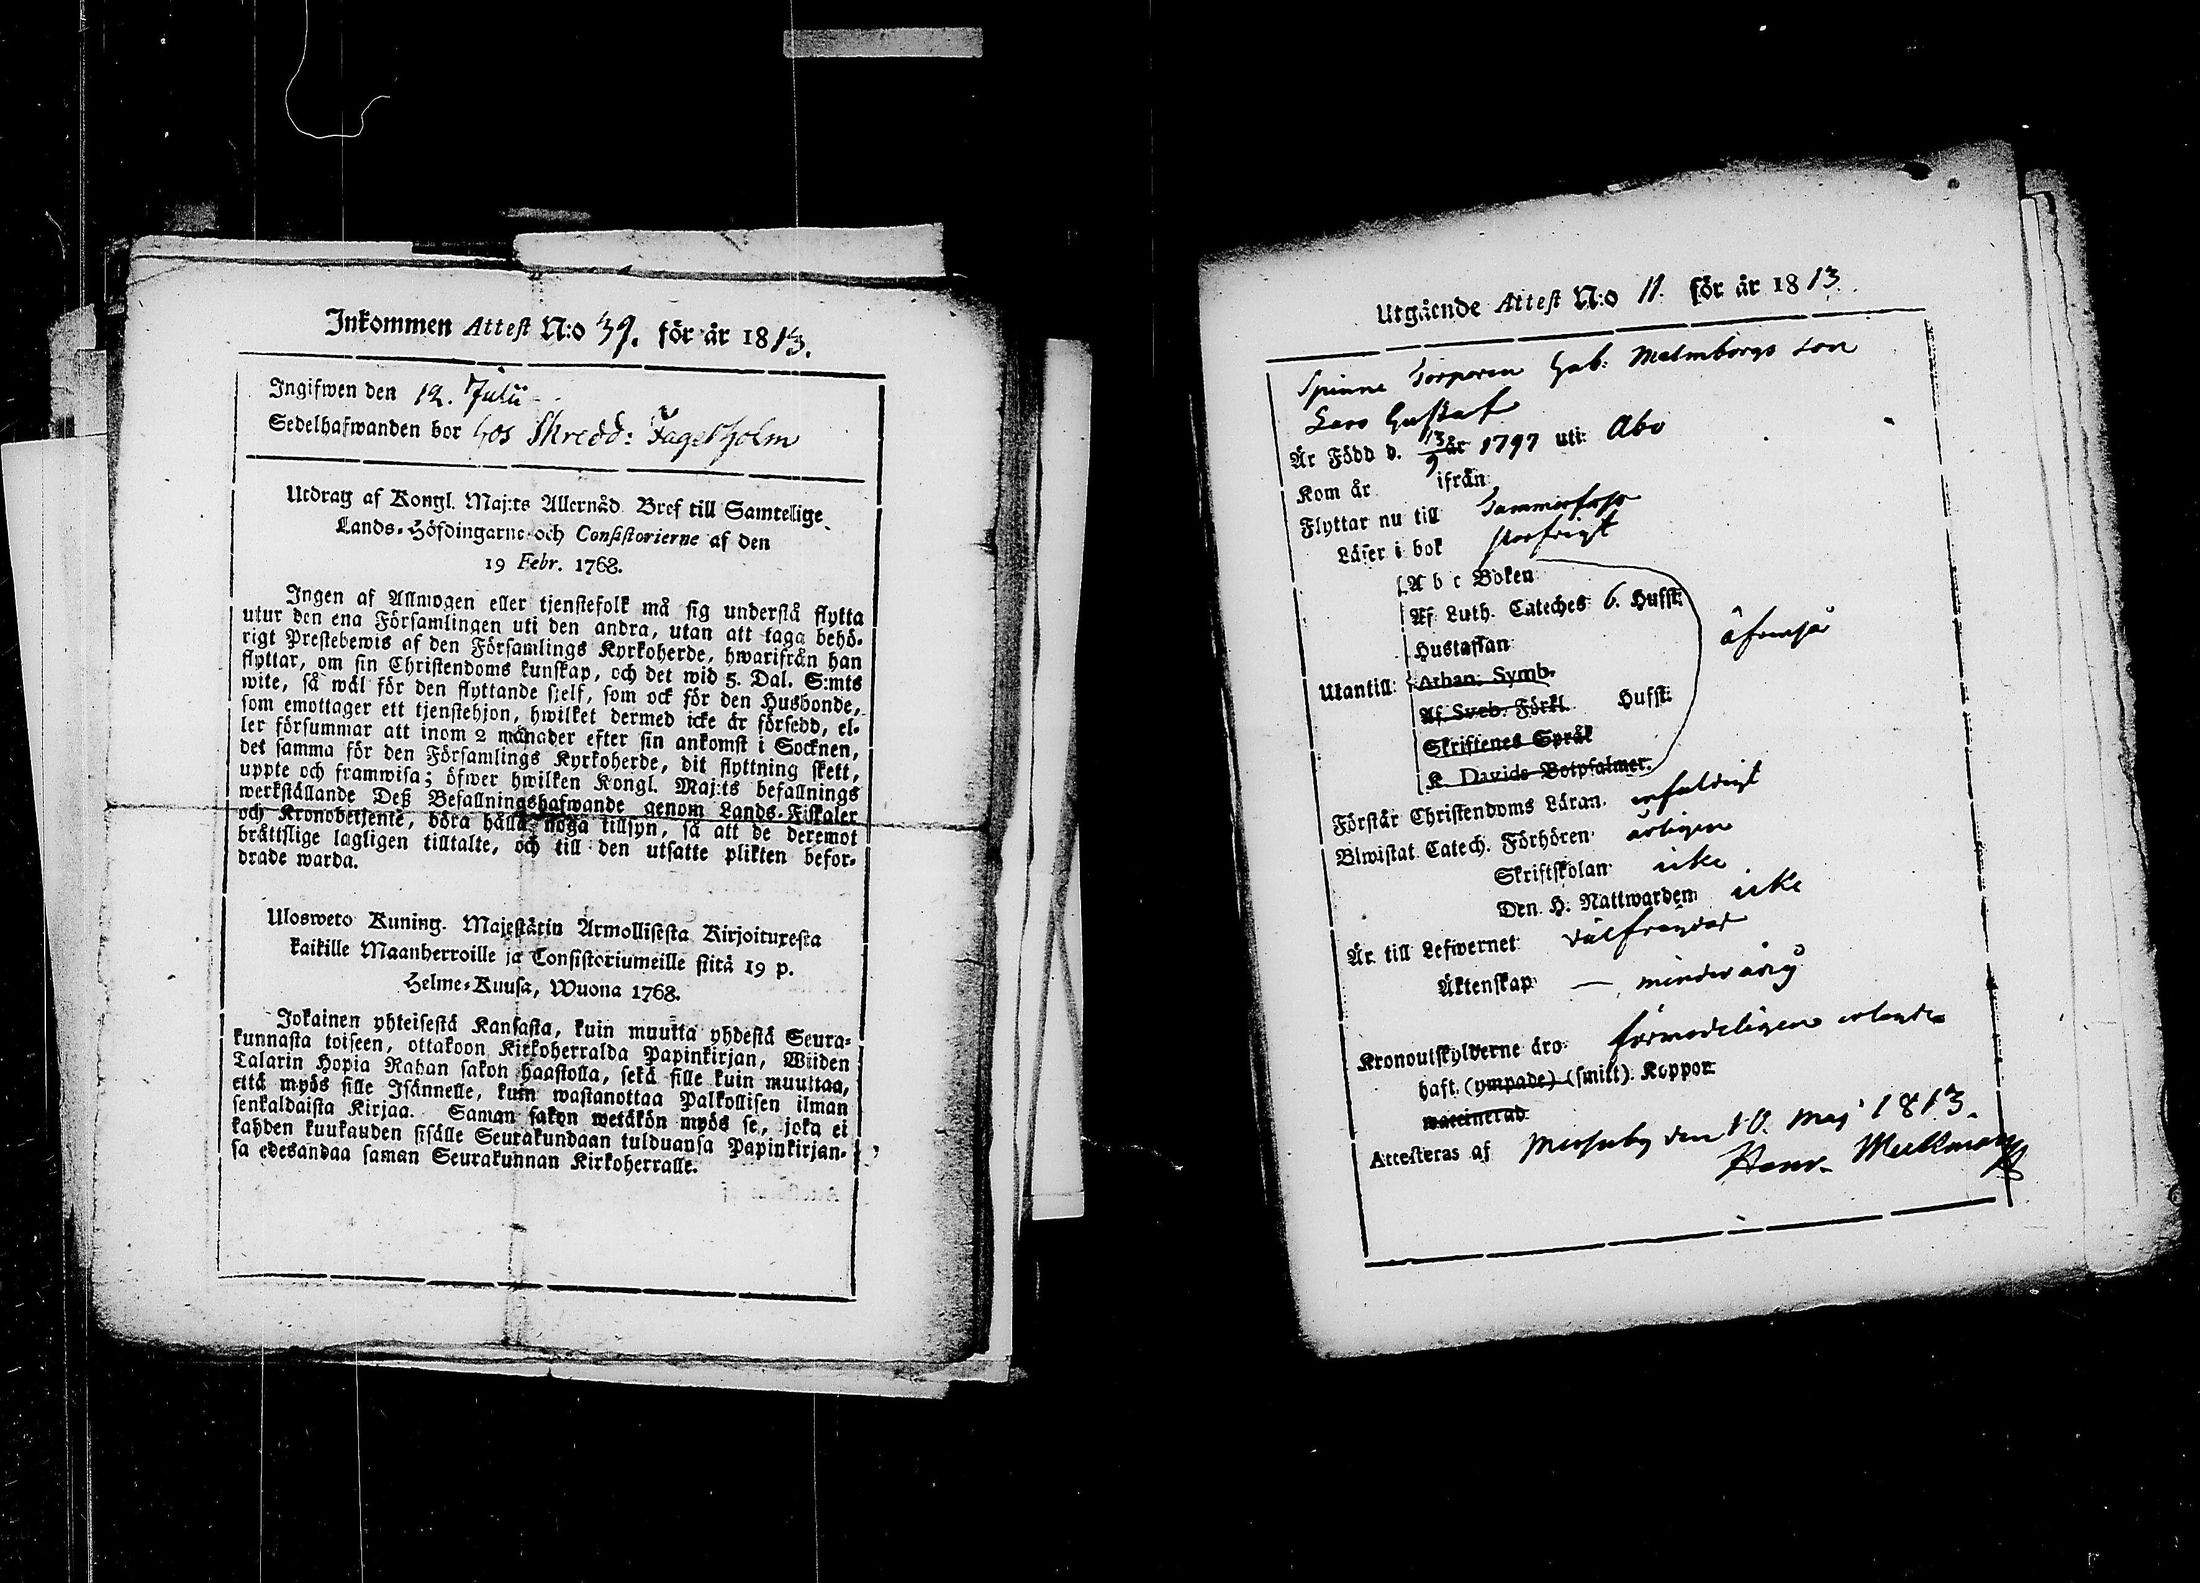 Inkommen Attest N:o 39. för år 1813.
Ingifwen den 12. Julii
Sedelhafwanden bor hos Skredd: Fagerholm
Utdrag af Kongl. Maj:ts Allernåd. Bref till Samtelige
Lands-Höfdingarne och Consistorierne af den
19 Febr. 1768.
Ingen af Allmogen eller tjenstefolk må sig understå flytta
utur den ena Församlingen uti den andra, utan att taga behö-
rigt Prestebewis af den Församlings Kyrkoherde, hwarifrån han
flyttar, om sin Christendoms kunskap, och det wid 5. Dal. S:mts
wite, så wäl för den flyttande sjelf, som ock för den Husbonde,
som emottager ett tjenstehjon, hwilket dermed icke är försedd, el-
ler försummar att inom 2 månader efter sin ankomst i Socknen,
det samma för den Församlings Kyrkoherde, dit flyttning skett,
uppte och framwisa; öfwer hwilken Kongl. Maj:ts befallnings
werkställande Deß Befallningshafwande genom Lands-Fiskaler
och Kronobetjente, böra hålla noga tillsyn, så att de deremot
bråttslige lagligen tilltalte, och till den utsatte plikten befor-
drade warda.
Ulosweto Kuning. Majestätin Armollisesta Kirjoituxesta
kaikille Maanherroille ja Consistoriumeille siitä 19 p.
Helme-Kuusa, Wuona 1768.
Jokainen yhteisestä Kansasta, kuin muutta yhdestä Seura-
kunnasta toiseen, ottakoon Kirkoherralda Papinkirjan, Wiiden
Talarin Hopia Rahan sakon haastolla, sekä sille kuin muuttaa,
että myös sille Isännelle, kuin wastanottaa Palkollisen ilman
senkaldaista Kirjaa. Saman sakon wetäkön myös se, joka ei
kahden kuukauden sisälle Seurakundaan tulduansa Papinkirjan-
sa edesandaa saman Seurakunnan Kirkoherralle.
Utgående Attest N:o 11. för år 1813.
Spinne Corporen Gab: Malmborgs son
Lars Gustaf
Är Född d. 13/9 år 1797 uti Åbo
Kom år ifrån
Flyttar nu till Tammerfors
Läser i bok
A b c Boken
Af Luth. Cateches 6. Hufst:
Hustaflan
Utantill: Athan: Symb.
Af Sveb. Förkl. Hufst:
Skriftenes Språk
K. Davids Botpsalmer.
Förstår Christendoms Läran. enfaldigt
Biwistat Catech. Förhören årligen
Skriftskolan icke
Den H. Nattwarden icke
Är till Lefwernet välfrägdad
Äktenskap — minderårig
Kronoutskylderne äro förmodeligen
haft (ympade) (smitt). Koppor
waccinerad
Attesteras af den 10. Maj 1813.
Henr.